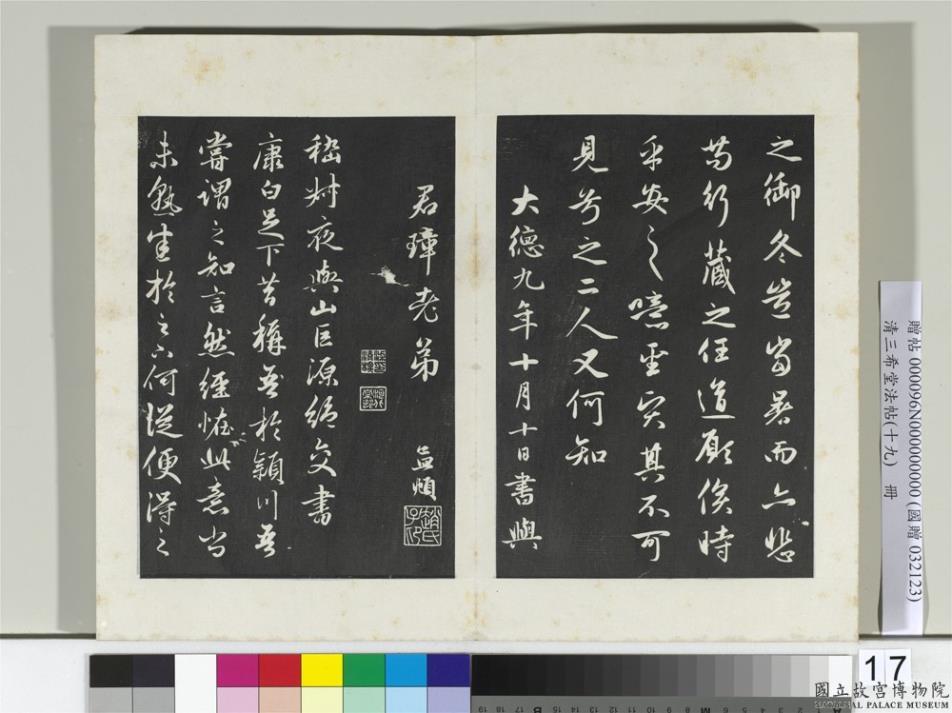 之御冬豈當暑而亦悲
苟行藏之任道顧俟時
乎安之噫聖實其不可
見兮之二人又何知
大德九年十月十日書與
君璋老弟 孟頫
趙氏子昂
嵇叔夜與山巨源絕交書
康白足下昔稱吾於潁川吾
嘗謂之知言然經恠此意尚
未熟悉於足下何從便得之
贈帖 000096N000000000 (國贈 032123)
清三希堂法帖(十九) 冊
17
國立故宮博物院
NATIONAL PALACE MUSEUM